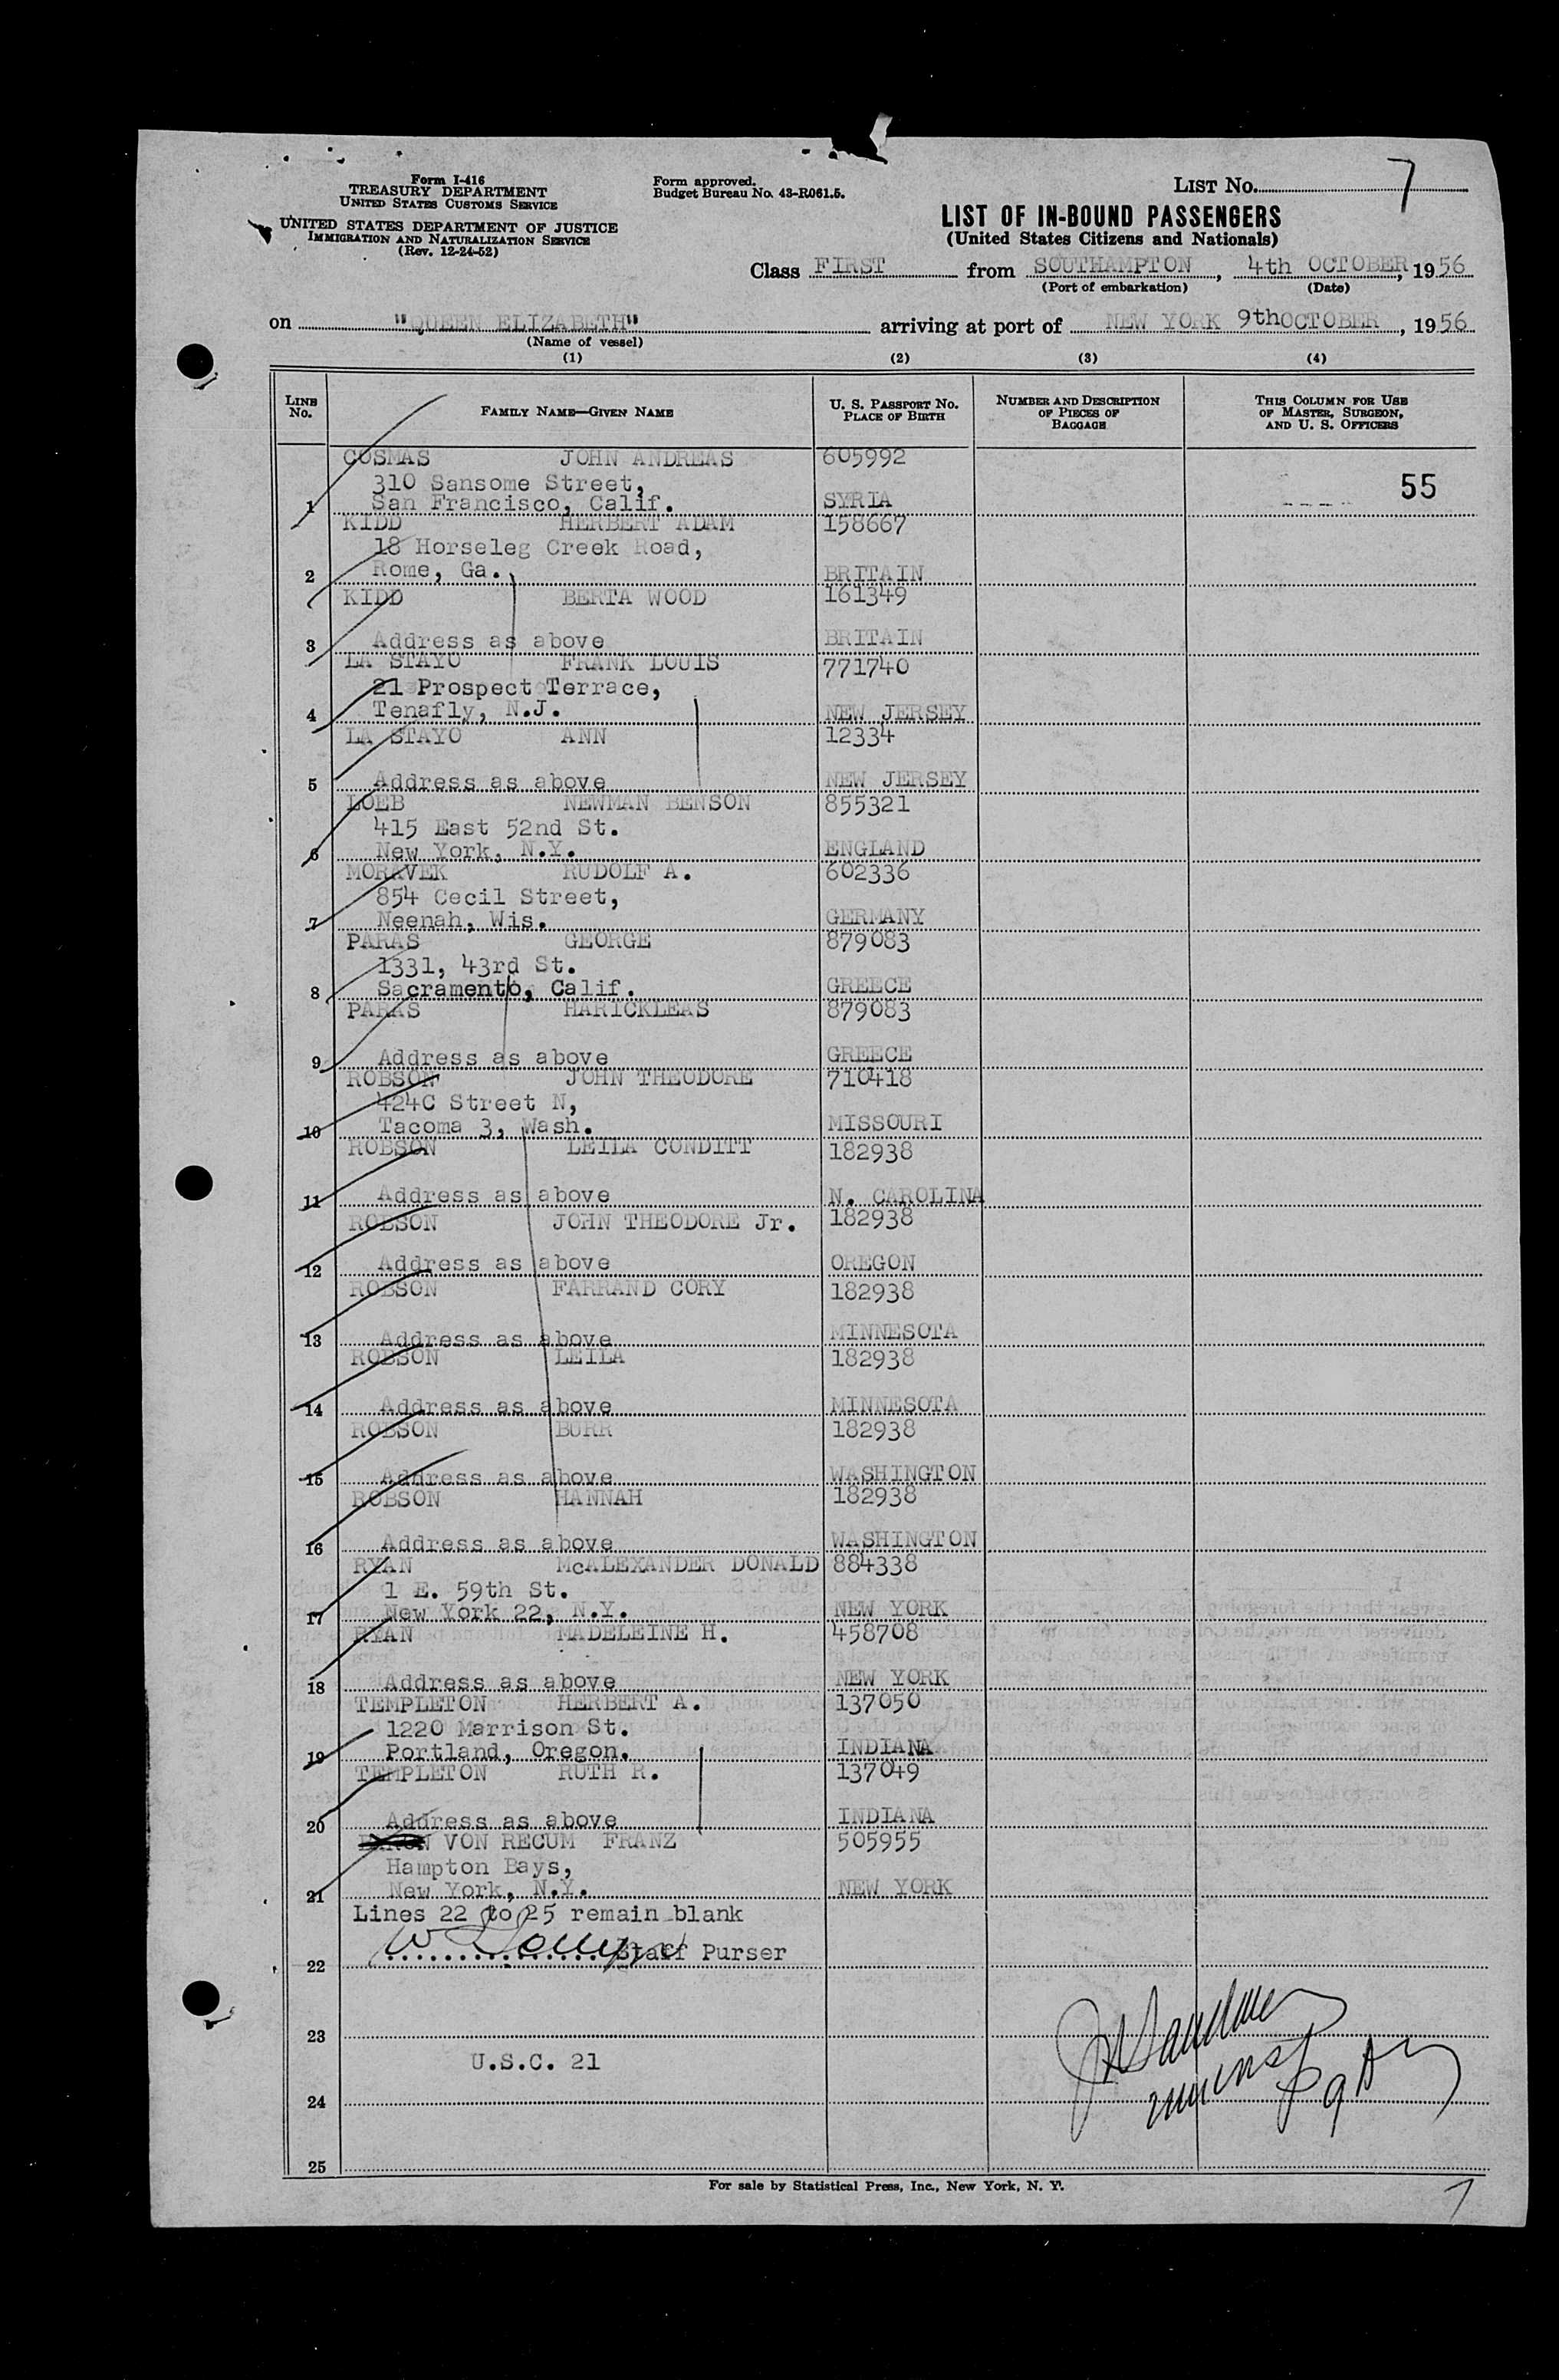 Form I-416
TREASURY DEPARTMENT
UNITED STATES CUSTOMS SERVICE
UNITED STATES DEPARTMENT OF JUSTICE
IMMIGRATION AND NATURALIZATION SERVICE
(Rev. 12-24-52)
Form approved.
Budget Bureau No. 43-R061.5.
LIST NO. 7
LIST OF IN-BOUND PASSENGERS
(United States Citizens and Nationals)
Class FIRST from SOUTHAMPTON, 4th OCTOBER, 1956
(Port of embarkation) (Date)
on "QUEEN ELIZABETH" arriving at port of NEW YORK 9th OCTOBER, 1956
(Name of vessel)
(1) (2) (3) (4)
LINE NO. FAMILY NAME—GIVEN NAME U. S. PASSPORT NO. PLACE OF BIRTH NUMBER AND DESCRIPTION OF PIECES OF BAGGAGE THIS COLUMN FOR USE OF MASTER, SURGEON, AND U. S. OFFICERS
COSMAS JOHN ANDREAS 605992
310 Sansome Street, 55
1 San Francisco, Calif. SYRIA
KIDD HERBERT ADAM 158667
18 Horseleg Creek Road,
2 Rome, Ga. BRITAIN
KIDD BERTA WOOD 161349
3 Address as above BRITAIN
LA STAYO FRANK LOUIS 771740
21 Prospect Terrace,
4 Tenafly, N.J. NEW JERSEY
LA STAYO ANN 12334
5 Address as above NEW JERSEY
LOEB NEWMAN BENSON 855321
415 East 52nd St.
6 New York, N.Y. ENGLAND
MORAVEK RUDOLF A. 602336
854 Cecil Street,
7 Neenah, Wis. GERMANY
PARAS GEORGE 879083
1331, 43rd St.
8 Sacramento, Calif. GREECE
PARAS HARICKLEAS 879083
9 Address as above GREECE
ROBSON JOHN THEODORE 710418
424C Street N,
10 Tacoma 3, Wash. MISSOURI
ROBSON LEILA CONDITT 182938
11 Address as above N. CAROLINA
ROBSON JOHN THEODORE Jr. 182938
12 Address as above OREGON
ROBSON FARRAND CORY 182938
13 Address as above MINNESOTA
ROBSON LEILA 182938
14 Address as above MINNESOTA
ROBSON BURR 182938
15 Address as above WASHINGTON
ROBSON HANNAH 182938
16 Address as above WASHINGTON
RYAN McALEXANDER DONALD 884338
1 E. 59th St.
17 New York 22, N.Y. NEW YORK
RYAN MADELEINE H. 458708
18 Address as above NEW YORK
TEMPLETON HERBERT A. 137050
1220 Marrison St.
19 Portland, Oregon. INDIANA
TEMPLETON RUTH R. 137049
20 Address as above INDIANA
VON RECUM FRANZ 505955
Hampton Bays,
21 New York, N.Y. NEW YORK
Lines 22 to 25 remain blank
Staff Purser
22
23
U.S.C. 21
24
25
For sale by Statistical Press, Inc., New York, N. Y.
7